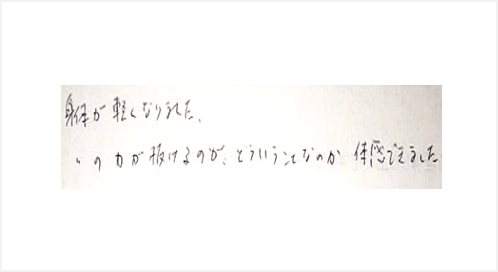 身体が軽くなりました、
〃の力が抜けるのが、どういうことなのか 体感できました